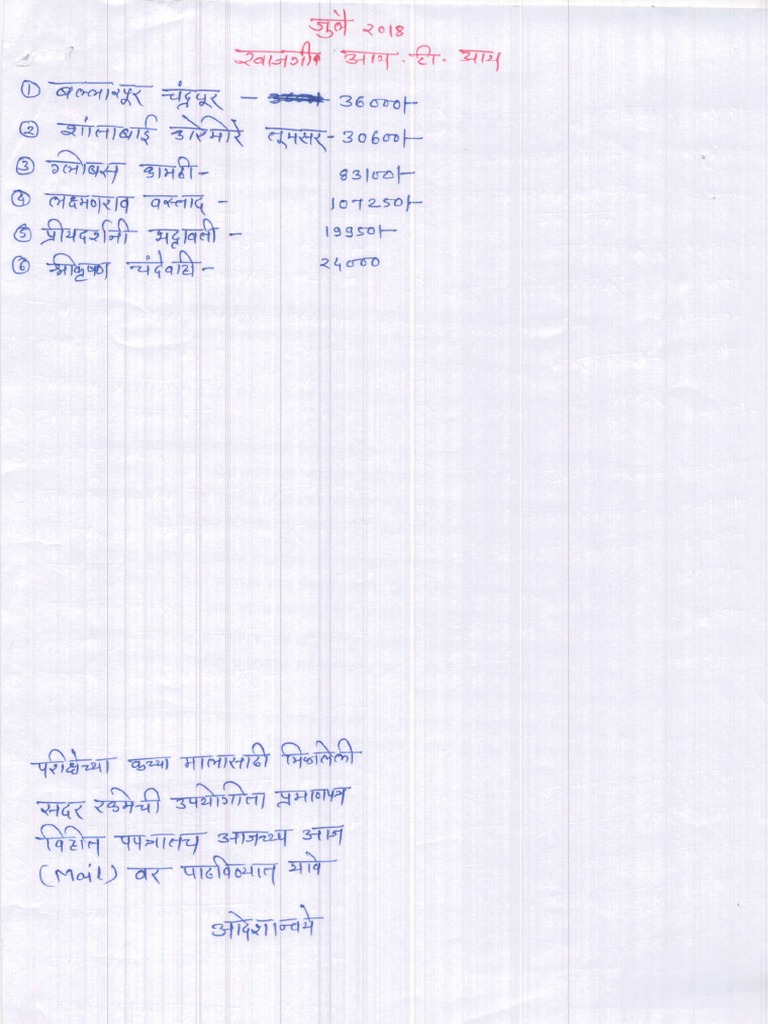 जुलै २०१८
खाजगी आय.टी.आय
① बल्लारपूर चंद्रपूर - 36000/-
② शांताबाई डोरमोरे तूमसर - 30600/-
③ ग्लोबस कामठी - 83100/-
④ लक्ष्मणराव वस्ताद - 107250/-
⑤ प्रीयदर्शनी भद्रावती - 19950/-
⑥ श्रीकृष्ण चंदेवाही - 24000
परीक्षेच्या कच्या मालासाठी मिळालेली
सदर रकमेची उपयोगीता प्रमाणपत्र
विहीत पपत्रातच आजच्या आज
(Mail) वर पाठविण्यात यावे
आदेशान्वये